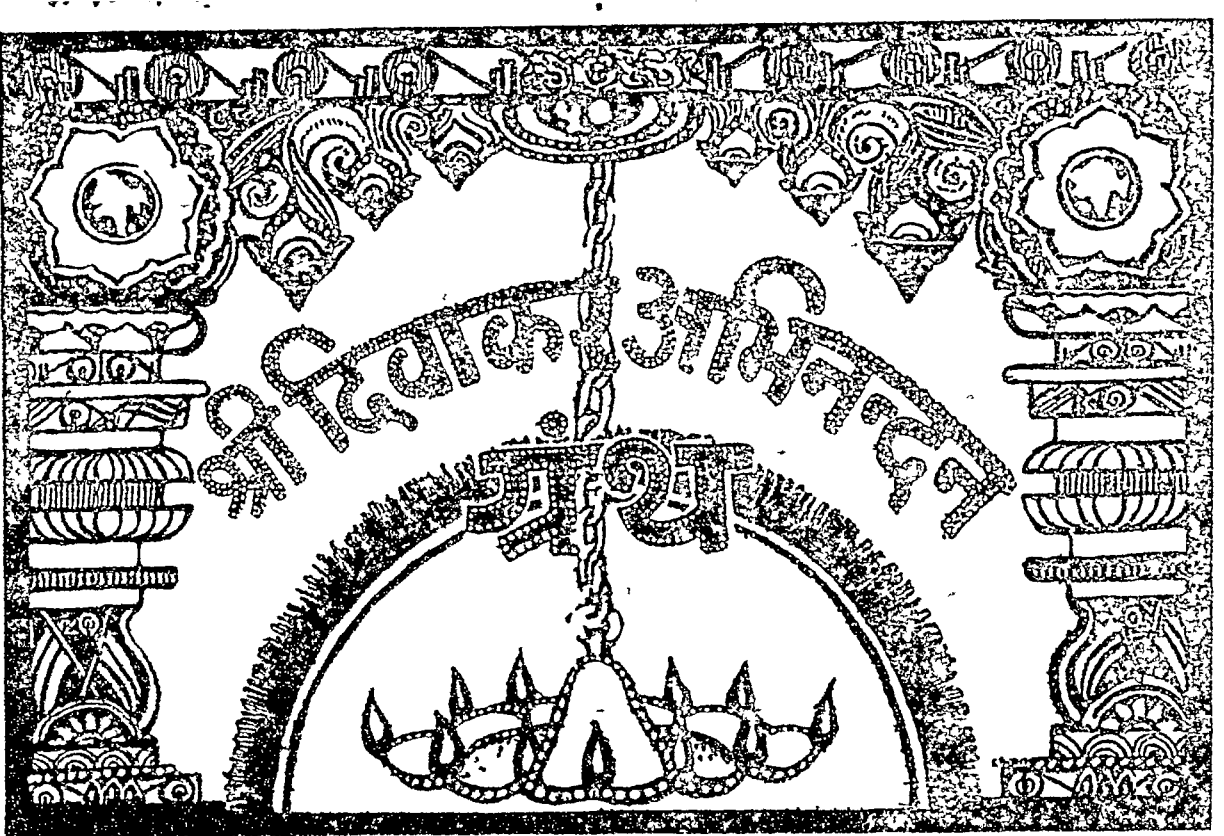 श्री दिवाकर अभिनन्दन
ग्रंथ